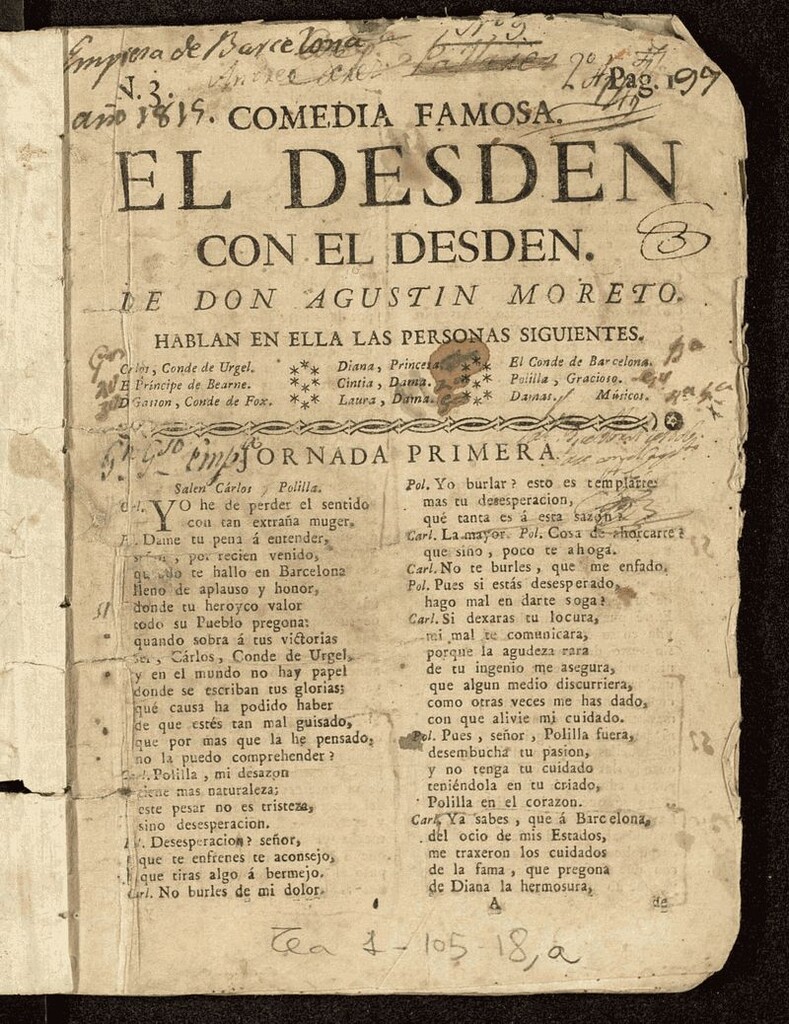 Empresa de Barcelona
N. 3.
Pag. 197
año 1815.
COMEDIA FAMOSA.
EL DESDEN
CON EL DESDEN.
3
DE DON AGUSTIN MORETO.
HABLAN EN ELLA LAS PERSONAS SIGUIENTES.
Carlos, Conde de Urgel. Diana, Princesa. El Conde de Barcelona.
El Príncipe de Bearne. Cintia, Dama. Polilla, Gracioso.
D. Gaston, Conde de Fox. Laura, Dama. Damas. Músicos.
JORNADA PRIMERA
Salen Cárlos y Polilla.
Carl. YO he de perder el sentido
con tan extraña muger.
P. Dame tu pena á entender,
señor, por recien venido,
quando te hallo en Barcelona
lleno de aplauso y honor,
donde tu heroyco valor
todo su Pueblo pregona:
quando sobra á tus victorias
ser, Cárlos, Conde de Urgel,
y en el mundo no hay papel
donde se escriban tus glorias;
qué causa ha podido haber
de que estés tan mal guisado,
que por mas que la he pensado,
no la puedo comprehender?
Carl. Polilla, mi desazon
tiene mas naturaleza;
este pesar no es tristeza,
sino desesperacion.
Pol. Desesperacion? señor,
que te enfrenes te aconsejo,
que tiras algo á bermejo.
Carl. No burles de mi dolor.
Pol. Yo burlar? esto es templarte:
mas tu desesperacion,
qué tanta es á esta sazon?
Carl. La mayor. Pol. Cosa de ahorcarte?
que sino, poco te ahoga.
Carl. No te burles, que me enfado.
Pol. Pues si estás desesperado,
hago mal en darte soga?
Carl. Si dexaras tu locura,
mi mal te comunicara,
porque la agudeza rara
de tu ingenio me asegura,
que algun medio discurriera,
como otras veces me has dado,
con que alivie mi cuidado.
Pol. Pues, señor, Polilla fuera,
desembucha tu pasion,
y no tenga tu cuidado
teniéndola en tu criado,
Polilla en el corazon.
Carl. Ya sabes, que á Barcelona,
del ocio de mis Estados,
me traxeron los cuidados
de la fama, que pregona
de Diana la hermosura,
A de
Tea 1-105-18, a